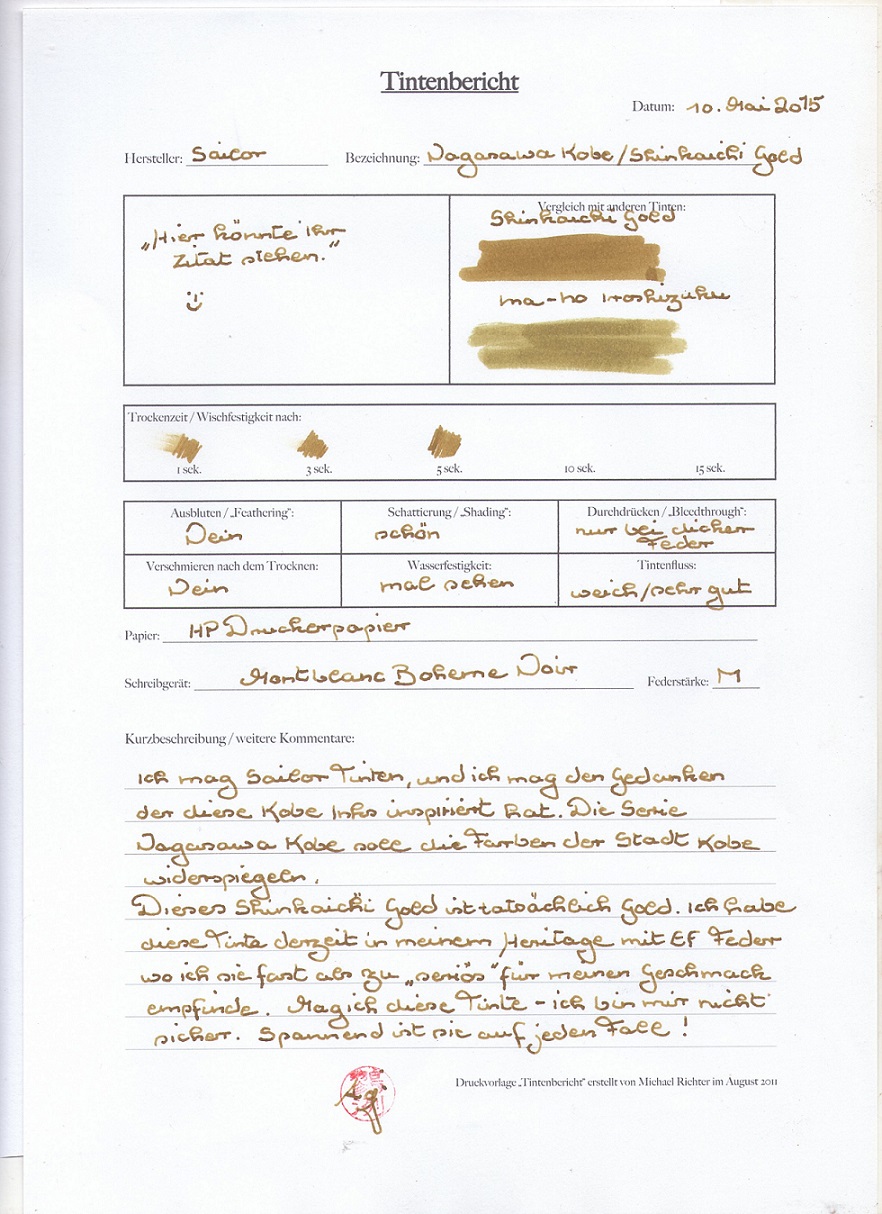 Tintenbericht
Datum: 10. Mai 2015
Hersteller: Sailor Bezeichnung: Nagasawa Kobe/Shinkaichi Gold
„Hier könnte Ihr
Zitat stehen."
Vergleich mit anderen Tinten:
Shinkaichi Gold
ma-ho Iroshizuku
Trockenzeit / Wischfestigkeit nach:
1 sek. 3 sek. 5 sek. 10 sek. 15 sek.
Ausbluten / „Feathering": Schattierung / „Shading": Durchdrücken / „Bleedthrough":
Nein schön nur bei dicker
Feder
Verschmieren nach dem Trocknen: Wasserfestigkeit: Tintenfluss:
Nein mal sehen weich/sehr gut
Papier: HP Druckerpapier
Schreibgerät: Montblanc Boheme Noir Federstärke: M
Kurzbeschreibung / weitere Kommentare:
Ich mag Sailor Tinten, und ich mag den Gedanken
der diese Kobe Inks inspiriert hat. Die Serie
Nagasawa Kobe soll die Farben der Stadt Kobe
widerspiegeln.
Dieses Shinkaichi Gold ist tatsächlich Gold. Ich habe
diese Tinte derzeit in meinem Heritage mit EF Feder
wo ich sie fast als zu „seriös" für meinen Geschmack
empfinde. Mag ich diese Tinte - ich bin mir nicht
sicher. Spannend ist sie auf jeden Fall!
Druckvorlage „Tintenbericht" erstellt von Michael Richter im August 2011